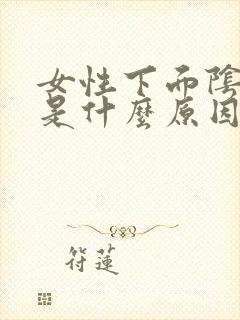 女性下面陰
是什麼原因
符蓮